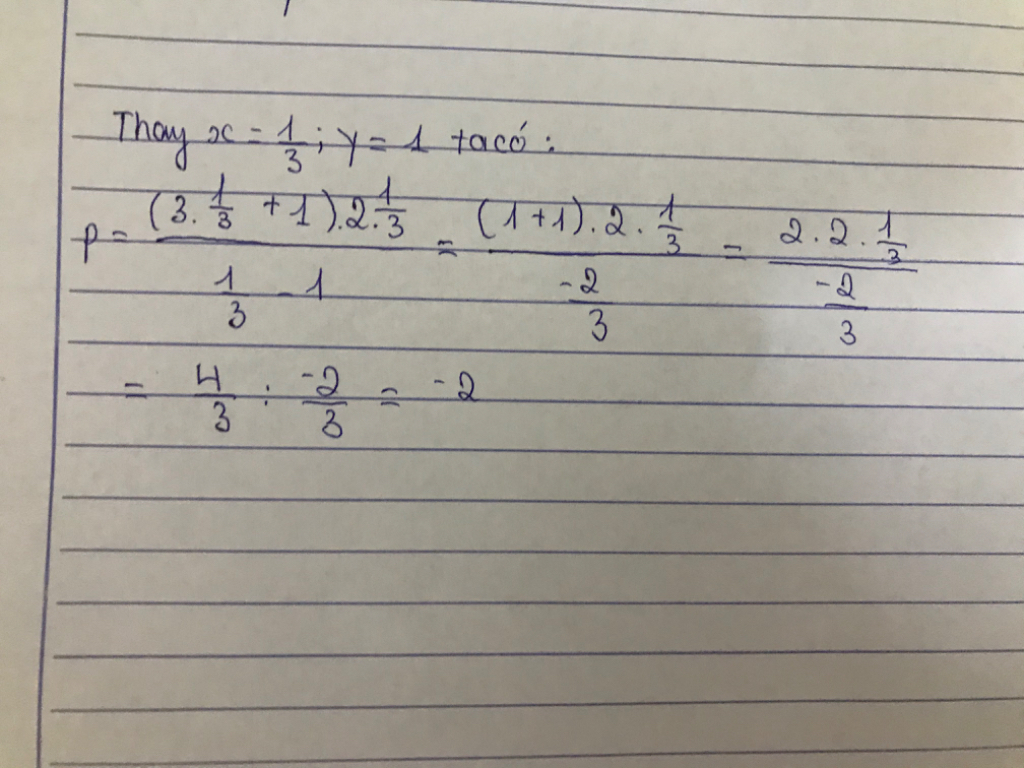 Thay x = 1/3 ; y = 1 ta có :
P = (3 . 1/3 + 1) . 2 . 1/3 / (1/3 - 1) = (1 + 1) . 2 . 1/3 / (-2/3) = 2 . 2 . 1/3 / (-2/3)
= 4/3 : -2/3 = -2